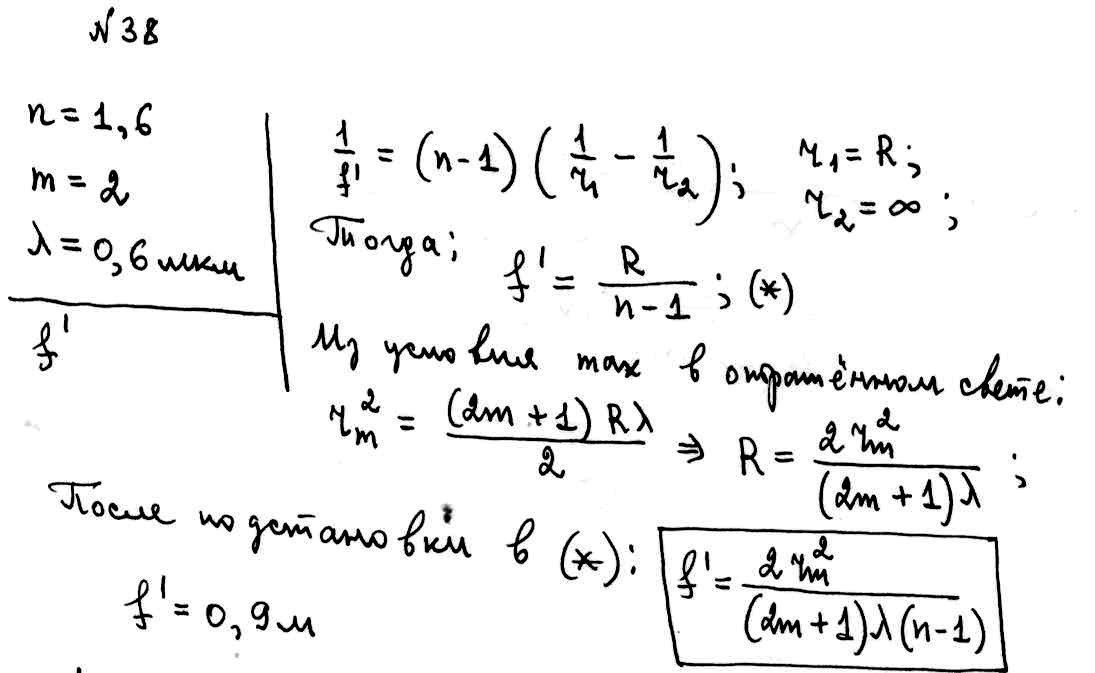 №38
n = 1,6
m = 2
λ = 0,6 мкм
f'
1/f' = (n-1) (1/r₁ - 1/r₂); r₁ = R;
r₂ = ∞;
Тогда; f' = R/(n-1); (*)
Из условия max в отражённом свете:
r_m² = (2m+1) Rλ/2 ⇒ R = 2r_m²/((2m+1)λ);
После подстановки в (*): f' = 2r_m²/((2m+1)λ(n-1))
f' = 0,9м